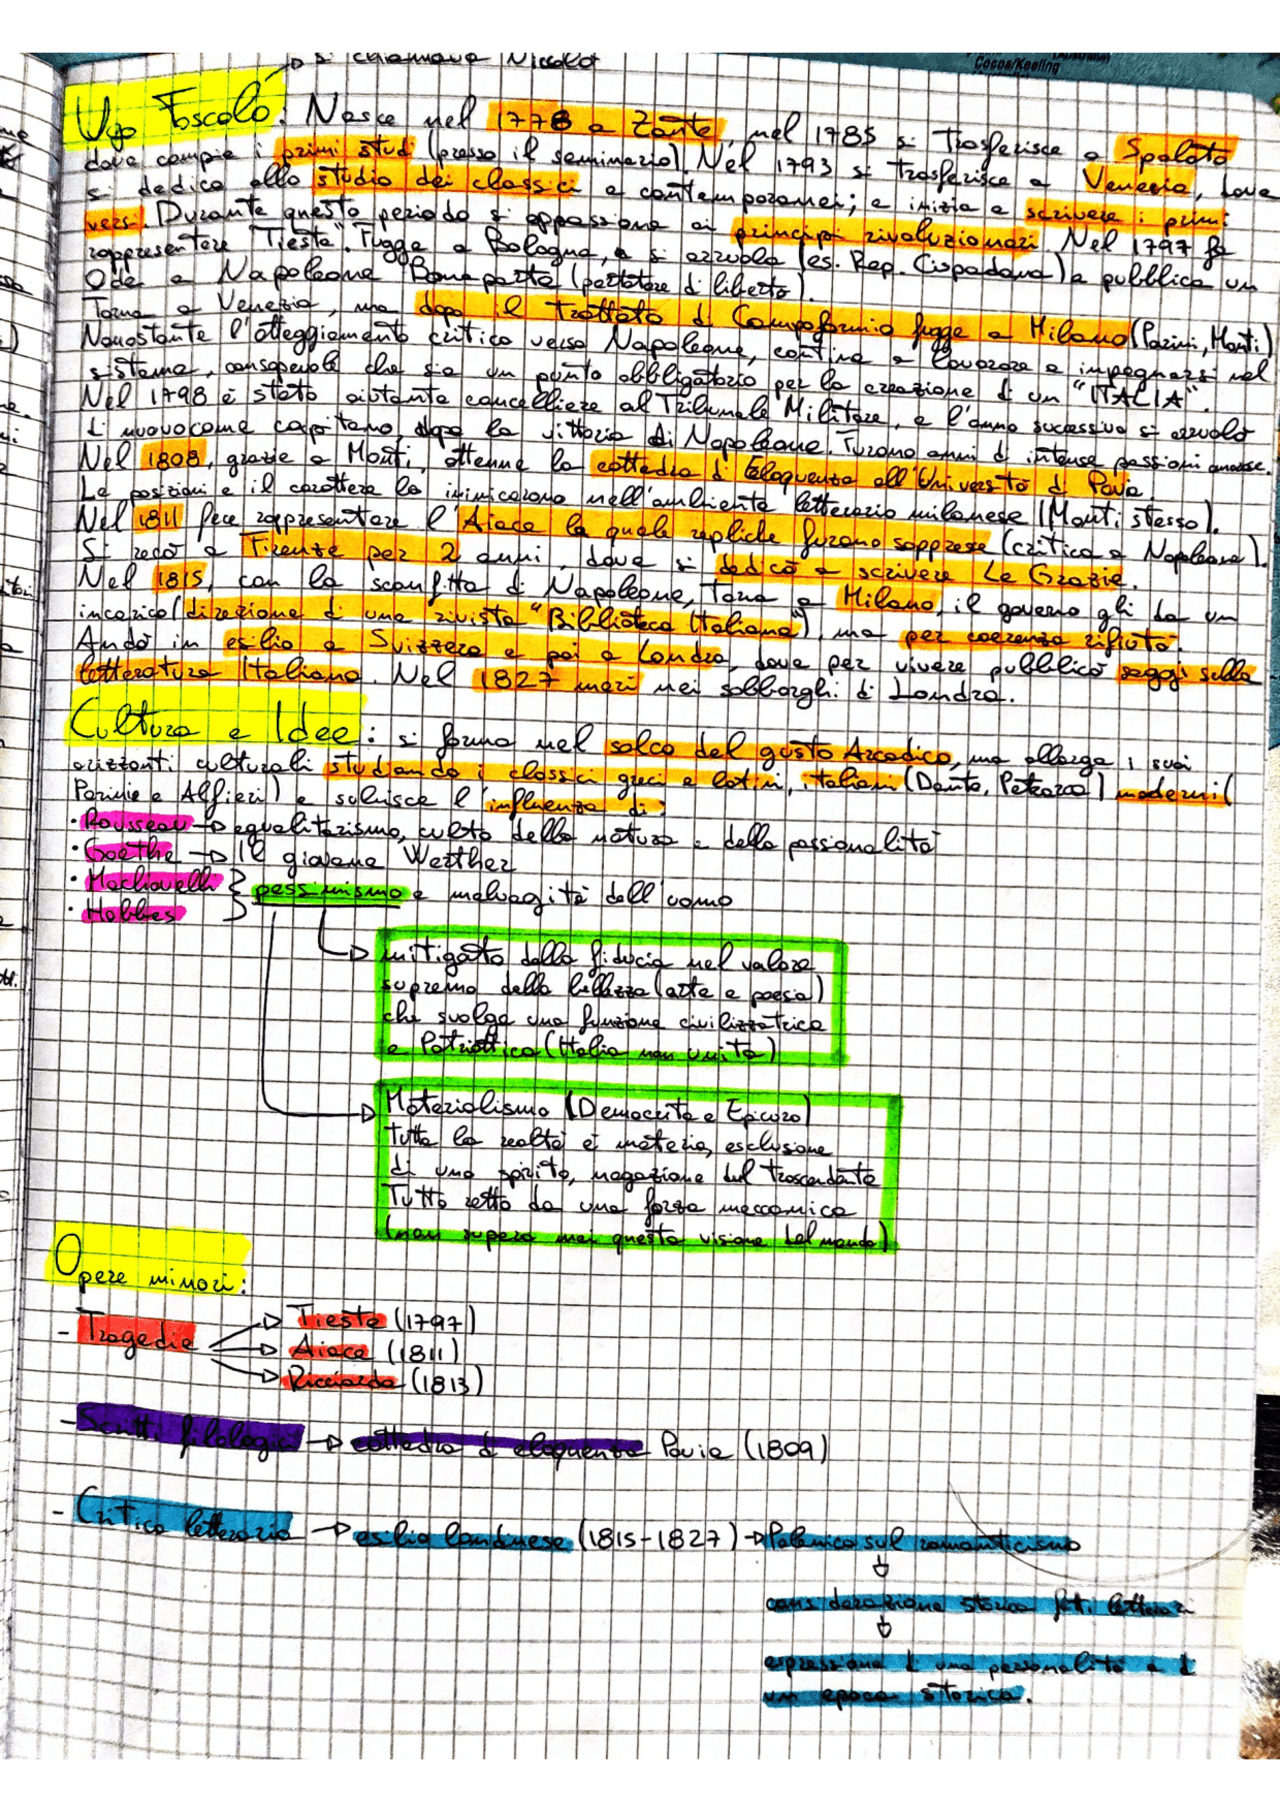 Cocoa/Keeling
→ si chiamava Niccolò
Ugo Foscolo: Nasce nel 1778 a Zante, nel 1785 si trasferisce a Spalato
dove compie i primi studi (presso il seminario). Nel 1793 si trasferisce a Venezia, dove
si dedica allo studio dei classici e contemporanei; e inizia a scrivere i primi
versi. Durante questo periodo si appassiona ai principi rivoluzionari. Nel 1797 fa
rappresentare "Tieste". Fugge a Bologna, e si arruola (es. Rep. Cispadana) e pubblica un
Ode a Napoleone Bonaparte (portatore di libertà).
Torna a Venezia, ma dopo il trattato di Campoformio fugge a Milano (Parini, Monti)
Nonostante l'atteggiamento critico verso Napoleone, contina a lavorare e impegnarsi nel
sistema, consapevole che sia un punto obbligatorio per la creazione di un "ITALIA".
Nel 1798 è stato aiutante cancelliere al Tribunale Militare, e l'anno successivo si arruolò
di nuovo come capitano, dopo la vittoria di Napoleone. Furono anni di intense passioni amorose.
Nel 1808, grazie a Monti, ottenne la cattedra di Eloquenza all'Università di Pavia.
Le posizioni e il carattere lo inimicarono nell'ambiente letterario milanese (Monti stesso).
Nel 1811 fece rappresentare l'Aiace la quale repliche furono soppresse (critica a Napoleone).
Si recò a Firenze per 2 anni, dove si dedicò a scrivere Le Grazie.
Nel 1815, con la sconfitta di Napoleone, Torna a Milano, il governo gli da un
incarico (direzione di una rivista "Biblioteca Italiana"), ma per coerenza rifiutò.
Andò in esilio a Svizzera e poi a Londra, dove per vivere pubblicò saggi sulla
letteratura Italiana. Nel 1827 morì nei sobborghi di Londra.
Cultura e Idee: si forma nel solco del gusto Arcadico, ma allarga i suoi
orizzonti culturali studiando i classici greci e latini, italiani (Dante, Petrarca) moderni (
Parini e Alfieri) e subisce l'influenza di:
• Rousseau → egualitarismo, culto della natura e della passionalità
• Goethe → Il giovane Werther
• Machiavelli } pessimismo e malvagità dell'uomo
• Hobbes }
→ mitigato dalla fiducia nel valore
supremo della bellezza (arte e poesia)
che svolge una funzione civilizzatrice
e Patriottica (Italia non unita)
→ Materialismo (Democrito e Epicuro)
tutta la realtà è materia, esclusione
di uno spirito, negazione del trascendente
Tutto retto da una forza meccanica
(non supera mai questa visione del mondo)
Opere minori:
- Tragedie → Tieste (1797)
→ Aiace (1811)
→ Ricciarda (1813)
- Scritti filologici → cattedra di eloquenza Pavia (1809)
- Critica letteraria → esilio londinese (1815-1827) → Polemica sul romanticismo
↓
considerazione storica fatti letterari
↓
espressione di una personalità e di
un epoca storica.